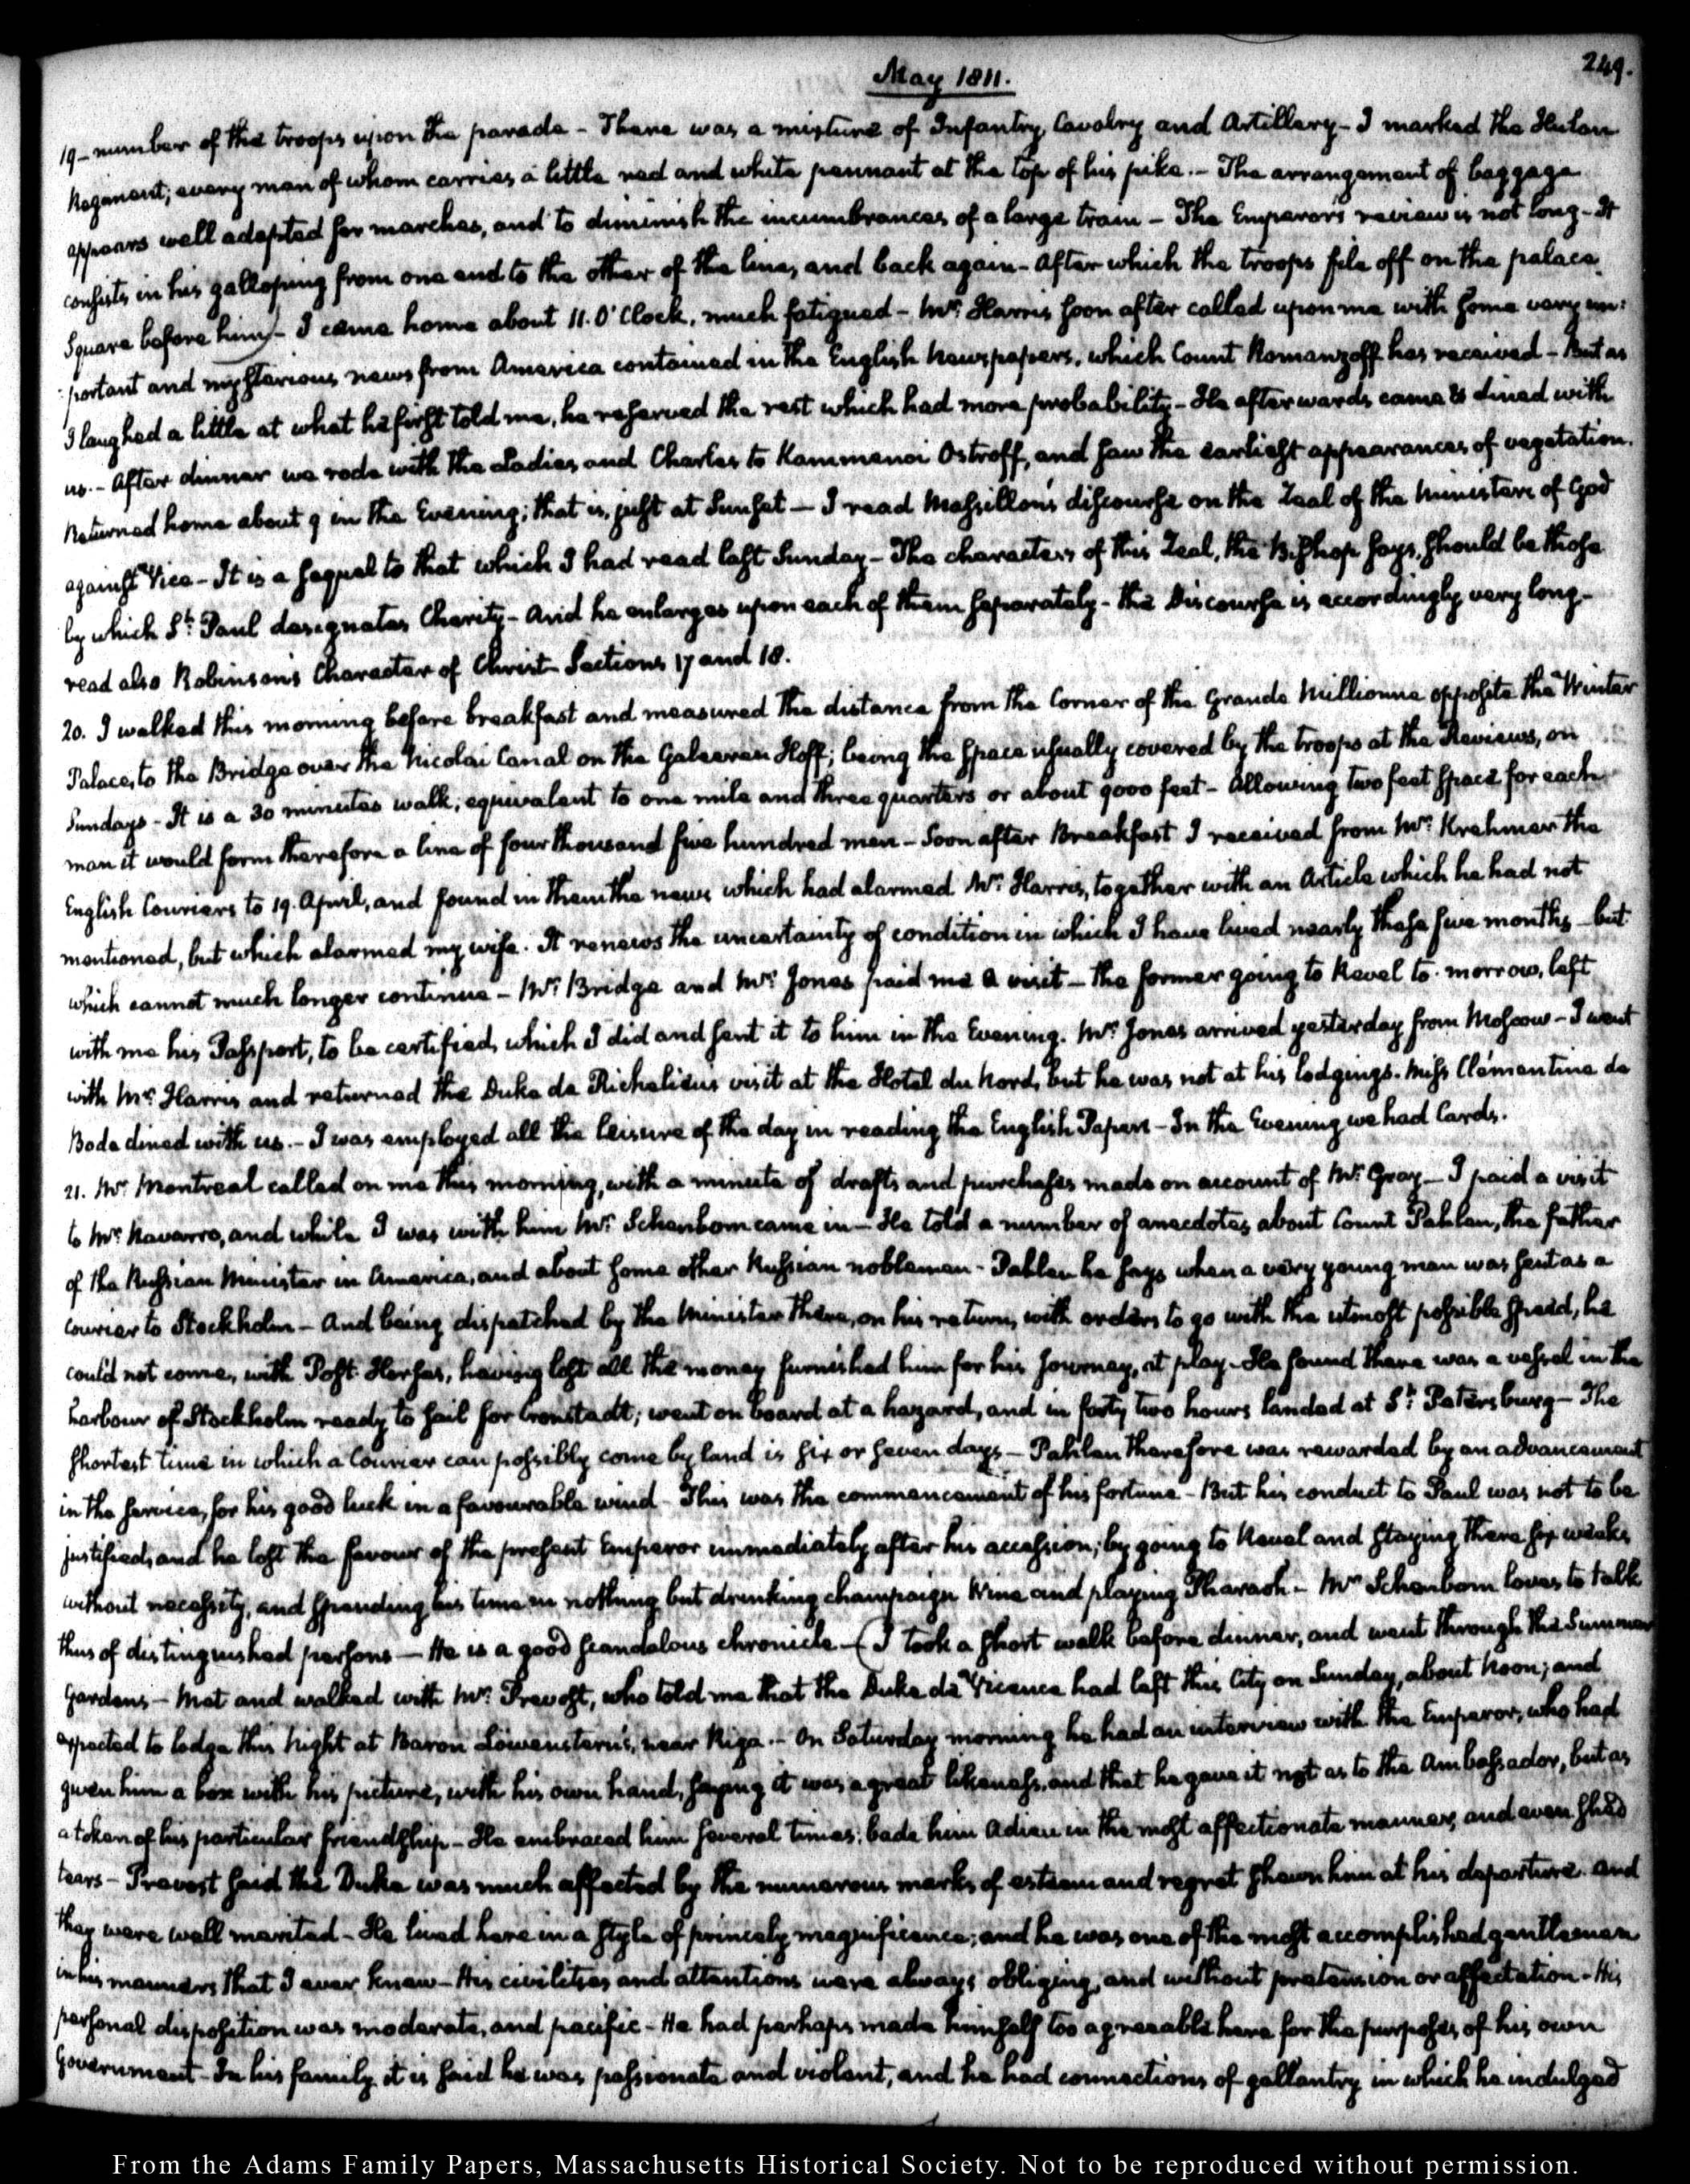 249.
May 1811.
19- number of the troops upon the parade - There was a mixture of Infantry, Cavalry and Artillery - I marked the Hulan
Regiment; every man of whom carries a little red and white pennant at the top of his pike. - The arrangement of baggage
appears well adapted for marches, and to diminish the incumbrances of a large train - The Emperor's review is not long - It
consists in his galloping from one end to the other of the line, and back again - After which the troops file off on the palace
Square before him) - I came home about 11. O'Clock, much fatigued - Mr. Harris soon after called upon me with some very im:
:portant and mysterious news from America contained in the English Newspapers, which Count Romanzoff has received - But as
I laughed a little at what he first told me, he reserved the rest which had more probability - He afterwards came & dined with
us. - After dinner we rode with the Ladies and Charles to Kammenoi Ostroff, and saw the earliest appearances of vegetation.
Returned home about 9 in the Evening; that is, just at Sunset - I read Massillon's discourse on the Zeal of the Ministers of God
against Vice - It is a sequel to that which I had read last Sunday - The characters of this Zeal, the Bishop says, should be those
by which St: Paul designates Charity - And he enlarges upon each of them separately - the Discourse is accordingly very long -
read also Robinson's Character of Christ Sections 17 and 18.
20. I walked this morning before breakfast and measured the distance from the Corner of the Grande Millionne opposite the Winter
Palace, to the Bridge over the Nicolai Canal on the Galeeren Hoff; being the space usually covered by the troops at the Reviews, on
Sundays - It is a 30 minutes walk; equivalent to one mile and three quarters or about 9000 feet - Allowing two feet space for each
man it would form therefore a line of four thousand five hundred men - Soon after Breakfast I received from Mr. Krehmer the
English Couriers to 19. April, and found in them the news which had alarmed Mr. Harris, together with an Article which he had not
mentioned, but which alarmed my wife. It renews the uncertainty of condition in which I have lived nearly these five months - but
which cannot much longer continue - Mr. Bridge and Mr. Jones paid me a visit - the former going to Revel to-morrow, left
with me his Passport, to be certified, which I did and sent it to him in the Evening. Mr. Jones arrived yesterday from Moscow - I went
with Mr. Harris and returned the Duke de Richelieu's visit at the Hotel du Nord, but he was not at his lodgings. Miss Clémentine de
Bode dined with us. - I was employed all the leisure of the day in reading the English Papers - In the Evening we had Cards.
21. Mr. Montreal called on me this morning, with a minute of drafts and purchases made on account of Mr. Gray - I paid a visit
to Mr. Navarro, and while I was with him Mr. Schenbom came in - He told a number of anecdotes about Count Pahlen, the father
of the Russian Minister in America, and about some other Russian noblemen - Pahlen he says when a very young man was sent as a
courier to Stockholm - And being dispatched by the Minister there, on his return, with orders to go with the utmost possible speed, he
could not come, with Post-Horses, having lost all the money furnished him for his journey, at play - He found there was a vessel in the
harbour of Stockholm ready to sail for Cronstadt; went on board at a hazard, and in forty two hours landed at St: Petersburg - The
shortest time in which a Courier can possibly come by land is six or seven days - Pahlen therefore was rewarded by an advancement
in the service, for his good luck in a favourable wind - This was the commencement of his fortune - But his conduct to Paul was not to be
justified, and he lost the favour of the present Emperor immediately after his accession; by going to Revel and staying there six weeks
without necessity, and spending his time in nothing but drinking champaign Wine and playing Pharaoh - Mr. Schenbom loves to talk
thus of distinguished persons - He is a good scandalous chronicle - (I took a short walk before dinner, and went through the Summer
Gardens - Met and walked with Mr. Prevost, who told me that the Duke de Vicence had left this City on Sunday, about Noon; and
expected to lodge this Night at Baron Löwenstern's, near Riga. - On Saturday morning he had an interview with the Emperor, who had
given him a box with his picture, with his own hand, saying it was a great likeness, and that he gave it not as to the Ambassador, but as
a token of his particular friendship - He embraced him several times; bade him Adieu in the most affectionate manner, and even shed
tears - Prevost said the Duke was much affected by the numerous marks of esteem and regret shewn him at his departure. And
they were well merited - He lived here in a style of princely magnificence; and he was one of the most accomplished gentlemen
in his manners that I ever knew - His civilities and attentions were always obliging, and without pretension or affectation - His
personal disposition was moderate, and pacific - He had perhaps made himself too agreeable here for the purposes of his own
Government - In his family it is said he was passionate and violent, and he had connections of gallantry in which he indulged
From the Adams Family Papers, Massachusetts Historical Society. Not to be reproduced without permission.